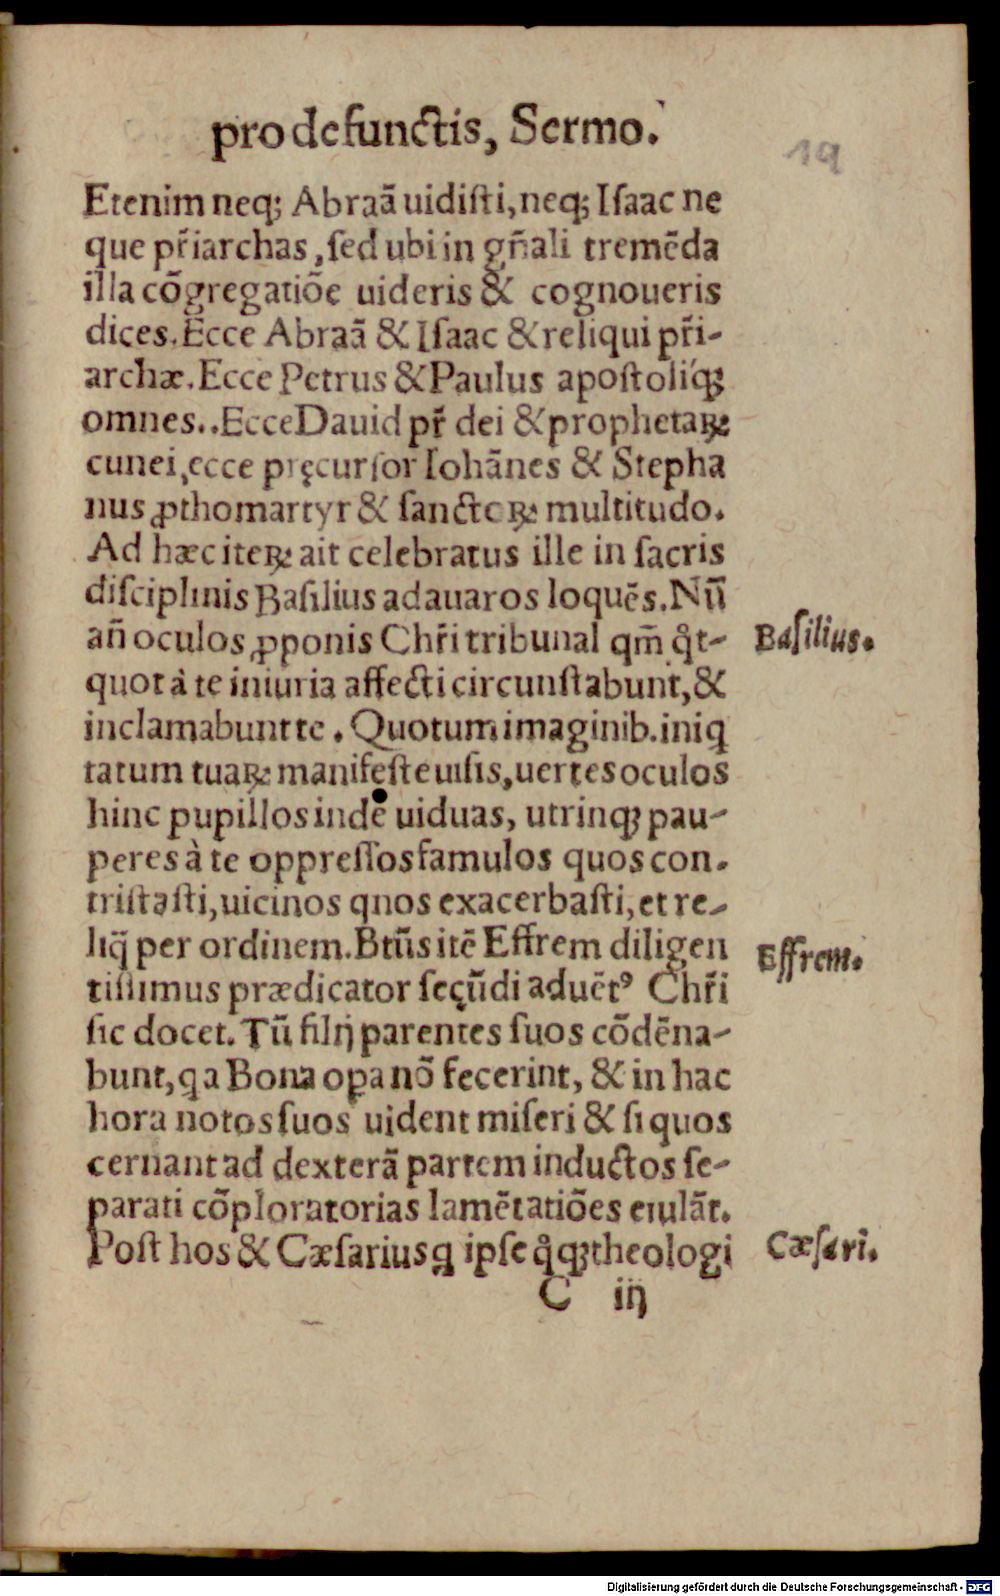 pro defunctis, Sermo.
19
Etenim neq; Abraã uidisti, neq; Isaac ne
que pr̃iarchas, sed ubi in gñali tremẽda
illa cõgregatiõe uideris & cognoueris
dices. Ecce Abraã & Isaac & reliqui pr̃i-
archæ. Ecce Petrus & Paulus apostoliq;
omnes.. Ecce Dauid pr̃ dei & prophetaꝝ
cunei, ecce pręcursor Iohãnes & Stepha
nus ꝓthomartyr & sanctoꝝ multitudo.
Ad hæc iteꝝ ait celebratus ille in sacris
disciplinis Basilius ad auaros loquẽs. Nũ
Basilius.
añ oculos ꝓponis Chr̃i tribunal qm̃ qͦt-
quot à te iniuria affecti circunstabunt, &
inclamabunt te. Quotum imaginib. iniq
tatum tuaꝝ manifeste uisis, uertes oculos
hinc pupillos inde uiduas, utrinq; pau-
peres à te oppressos famulos quos con-
tristasti, uicinos qnos exacerbasti, et re-
liq̃ per ordinem. Btũs itẽ Effrem diligen
Effrem.
tissimus prædicator secũdi aduẽtꝰ Chr̃i
sic docet. Tũ filij parentes suos cõdẽna-
bunt, q a Bona oꝑa nõ fecerint, & in hac
hora notos suos uident miseri & si quos
cernant ad dexterã partem inductos se-
parati cõploratorias lamẽtatiões eiulãt.
Post hos & Cæsarius q ipse qͦq; theologi
Cæsari.
C iij
Digitalisierung gefördert durch die Deutsche Forschungsgemeinschaft - DFG